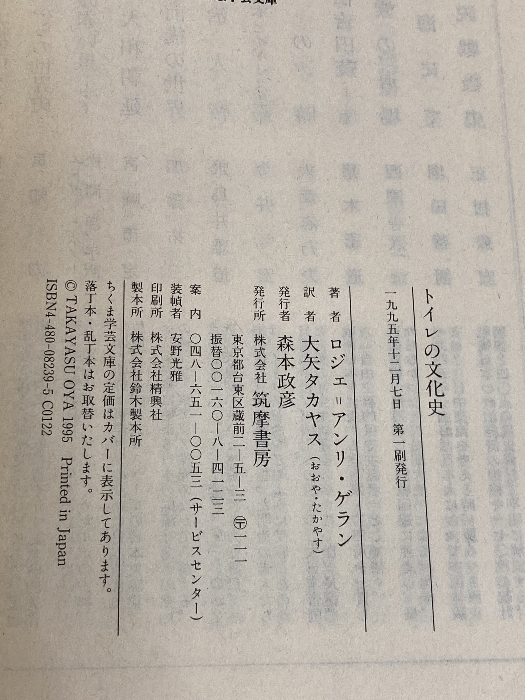 トイレの文化史
一九九五年十二月七日　第一刷発行
著　者　ロジェ＝アンリ・ゲラン
訳　者　大矢タカヤス（おおや・たかやす）
発行者　森本政彦
発行所　株式会社 筑摩書房
東京都台東区蔵前二―五―三　〒一一一
振替〇〇一六〇―八―四一二三
案　内　〇四八―六五一―〇〇五三（サービスセンター）
装幀者　安野光雅
印刷所　株式会社精興社
製本所　株式会社鈴木製本所
ちくま学芸文庫の定価はカバーに表示してあります。
落丁本・乱丁本はお取替いたします。
© TAKAYASU OYA 1995　Printed in Japan
ISBN4-480-08239-5 C0122